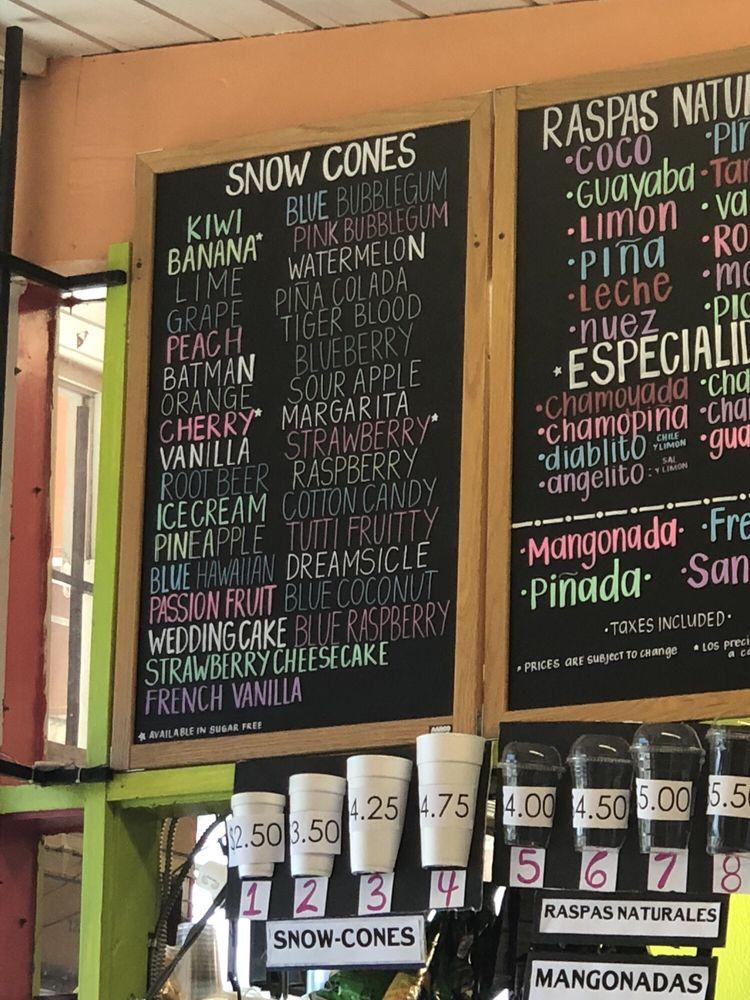 SNOW CONES
KIWI
BANANA*
LIME
GRAPE
PEACH
BATMAN
ORANGE
CHERRY*
VANILLA
ROOT BEER
ICE CREAM
PINEAPPLE
BLUE HAWAIIAN
PASSION FRUIT
WEDDING CAKE
STRAWBERRY CHEESECAKE
FRENCH VANILLA
BLUE BUBBLEGUM
PINK BUBBLEGUM
WATERMELON
PIÑA COLADA
TIGER BLOOD
BLUEBERRY
SOUR APPLE
MARGARITA
STRAWBERRY*
RASPBERRY
COTTON CANDY
TUTTI FRUITTY
DREAMSICLE
BLUE COCONUT
BLUE RASPBERRY
* AVAILABLE IN SUGAR FREE
RASPAS
•COCO
•Guayaba
•Limon
•Piña
•Leche
•nuez
*
•Chamoyada
•chamopina
•diablito CHILE Y LIMON
•angelito : SAL Y LIMON
•Mangonada•
•Piñada•
•TAXES INCLUDED•
* PRICES ARE SUBJECT TO CHANGE
$2.50 3.50 4.25 4.75
1 2 3 4
SNOW-CONES
4.00 4.50 5.00
5 6 7 8
RASPAS NATURALES
MANGONADAS